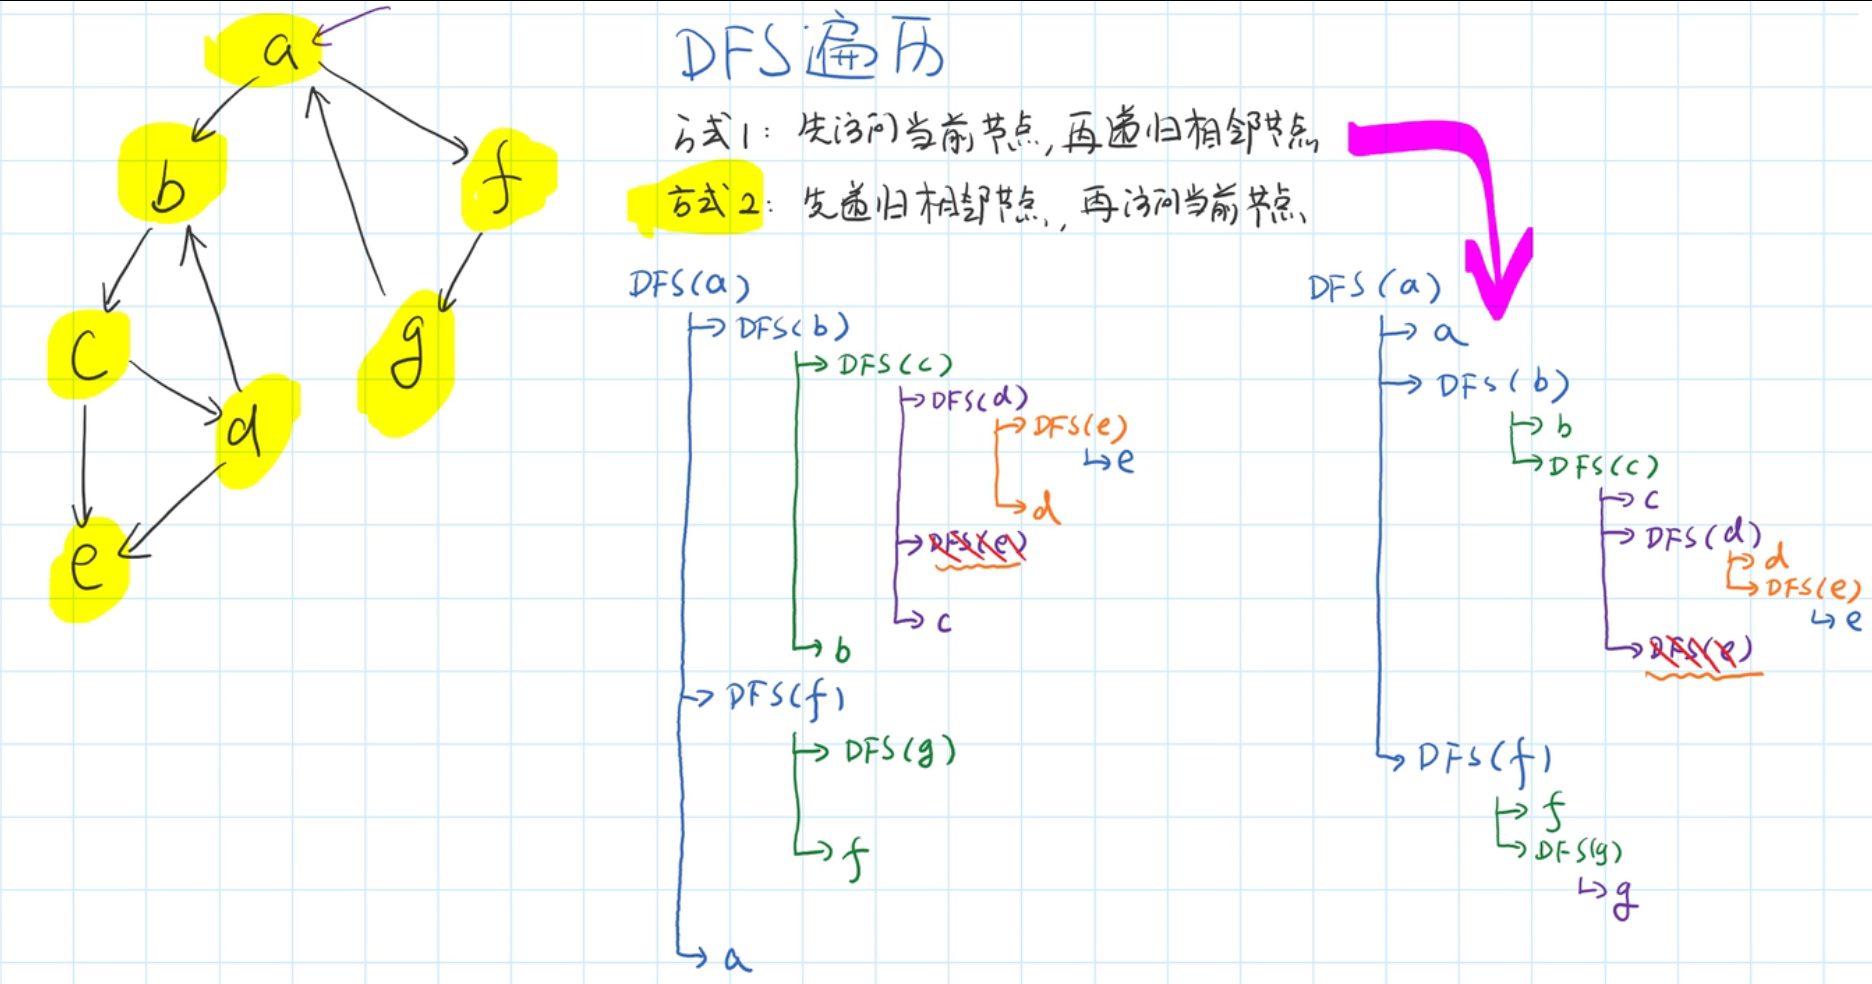 DFS遍历
方式1：先访问当前节点,再递归相邻节点
方式2：先递归相邻节点,再访问当前节点
a
b
f
c
g
d
e
DFS(a)
DFS(b)
DFS(c)
DFS(d)
DFS(e)
e
d
DFS(e)
c
b
DFS(f)
DFS(g)
f
a
DFS(a)
a
DFS(b)
b
DFS(c)
c
DFS(d)
d
DFS(e)
e
DFS(e)
DFS(f)
f
DFS(g)
g